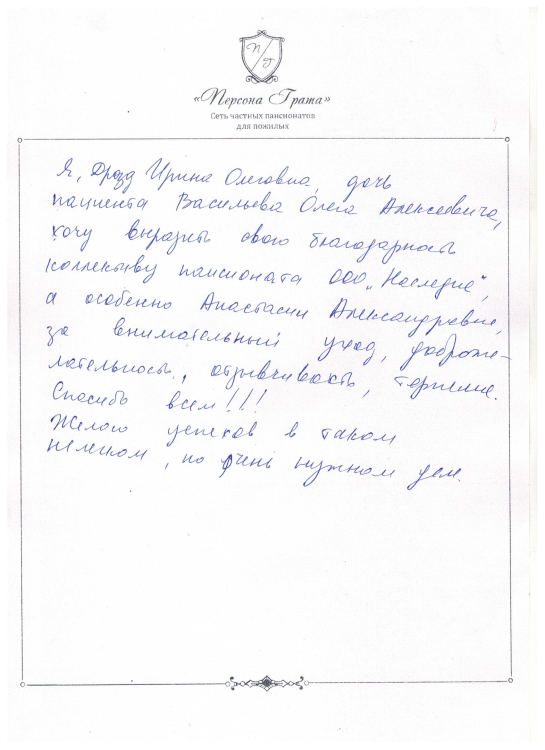 П/Г
«Персона Грата»
Сеть частных пансионатов
для пожилых
Я, Дрозд Ирина Олеговна, дочь
пациента Васильева Олега Алексеевича,
хочу выразить свою благодарность
коллективу пансионата ООО „Наследие",
а особенно Анастасии Александровне,
за внимательный уход, доброже-
лательность, отзывчивость, терпение.
Спасибо всем!!!
Желаю успехов в таком
нелегком, но очень нужном деле.